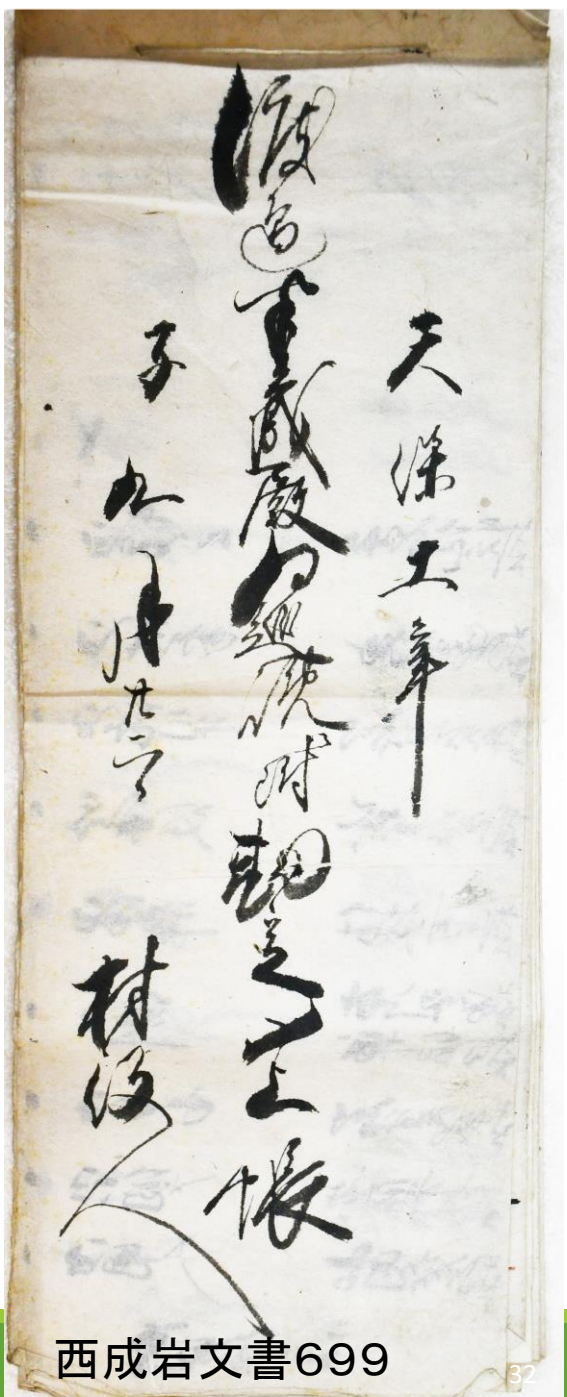 天保十一年
渡邉半蔵殿御巡 勘定〆上帳
子九月廿 日
村役人
西成岩文書699
32